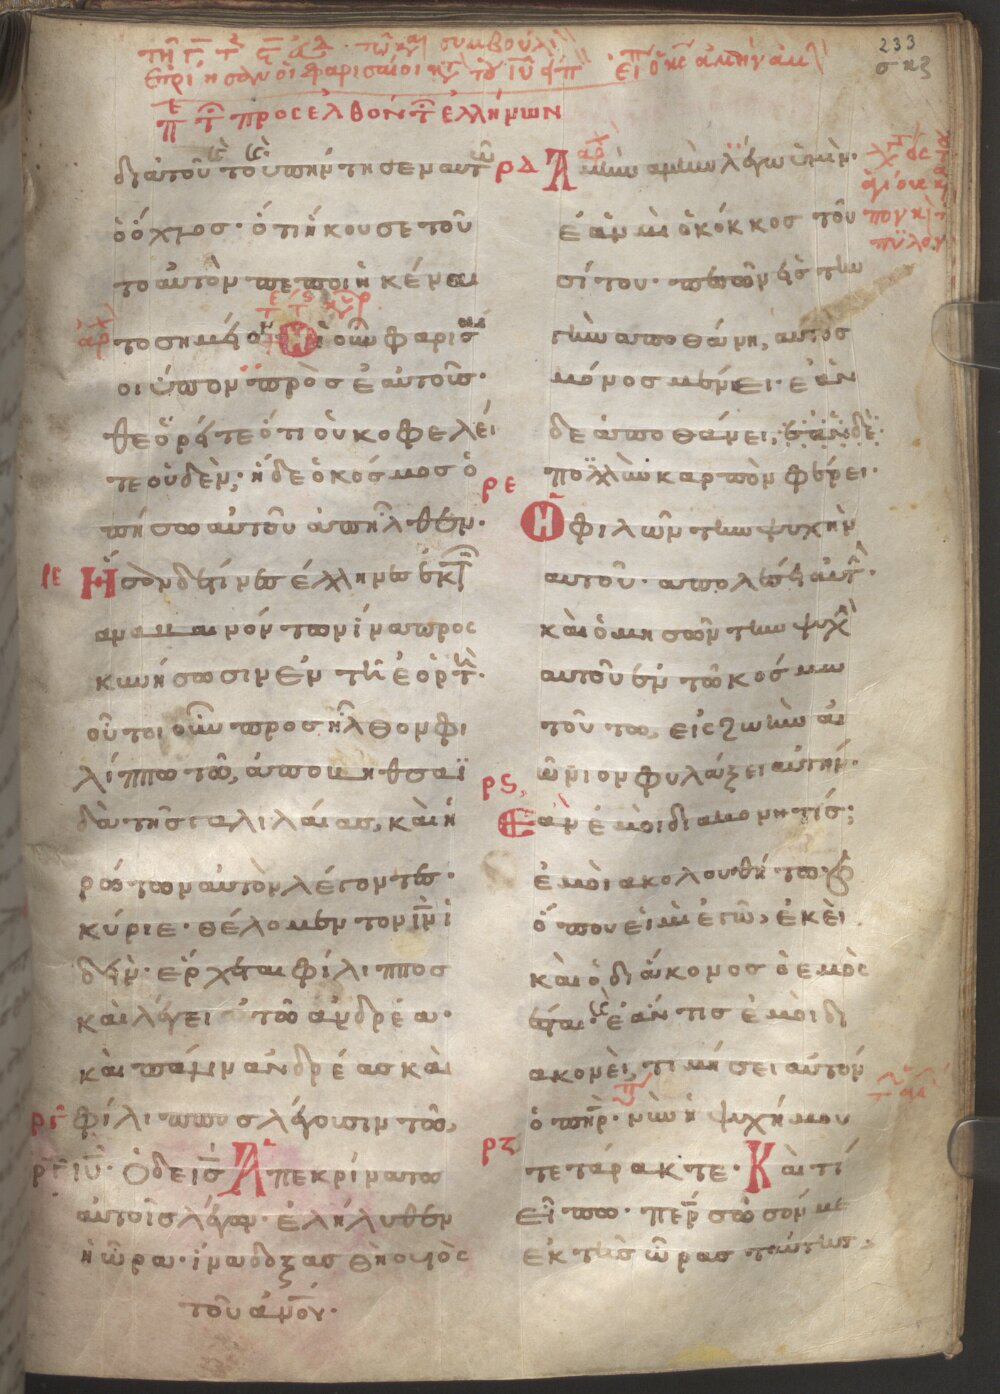 233
σκζ
ἐποίησαν οἱ φαρισαῖοι κτ τοῦ ιυ
περὶ τ προσελθόντ ἑλλήνων
διατοῦτο ὑπήντησεν αυτῶ
ὁ όχλος· ότι ήκουσε τοῦ
το αυτὸν πεποιηκέναι
το σημεῖον Οἱ οὖν φαρισαῖ
οι εῖπον πρὸσ ἑαυτοῦς·
θεορεῖτε ότι οὐκ οφελεί
τε οὐδὲν; ἴδε ὁ κόσμοσ ὀ
πήσω αυτοῦ ἀπῆλθεν·
ρε Ησὰν δέ τίνες ἑλληνες ἐκτ
αναβαινόν των ίνα προς
κυνήσωσιν ἐν τῆ ἑορτῆ·
οὗτοι οὖν προσῆλθον φι
λίππω τῶ, ἀπο βηθσαϊ
δὰ τῆσ γαλιλαίας, καὶ ή
ρώτων αυτὸν λέγοντες·
κύριε· θέλομεν τον ιν ἰ
δεῖν· ερχεται φίλιππος
καὶ λέγει τῶ ανδρέα·
καὶ πάλιν ανδρέας καὶ
φίλιππος λέγουσιν τῶ,
ιυ· Ὁ δε ις Απεκρίνατο
αυτοῖς λέγων· ἐλήλυθεν
ἡ ὥρα· ίνα δοξασθῆ ο υιὸς
τοῦ ανου·
ρδ Αμὴν αμὴν λέγω ὑμῖν·
ἐὰν μὴ ὁ κόκκοσ τοῦ
σίτου· πεσὼν εἰς την
γῆν αποθάνη, αυτος
μόνοσ μένει· εὰν
δε ἀποθάνει, εὰν δὲ
πολλὺν καρπὸν φέρει·
ρε Ὁ φιλῶν την ψυχὴν
αυτοῦ· απολέσει αυτ·
καὶ ὁ μισῶν την ψυχὴ
αυτοῦ ἐν τῶ κόσμω
τοῦτω, εἰς ζωὴν αἰ
ὥνιον φυλάξει αυτήν·
ρς Εὰν ἐμοι διακονη τίς;
ἐμοὶ ακολουθήτω· ϗ
ὅπου εἰμὶ ἐγὼ, ἐκεῖ
καὶ ὁ διάκονοσ ὁ εμὸς
έσται· ϗ ἐάν τισ ἐμοὶ δι
ακονεῖ, τιμήσει αυτόν
ὁ πηρ· νῦν ἡ ψυχή μου
ρζ τετάρακτε· Καὶ τί
εἴπω· περ σῶσόν με
ἐκ τῆσ ὥρασ ταύτης·